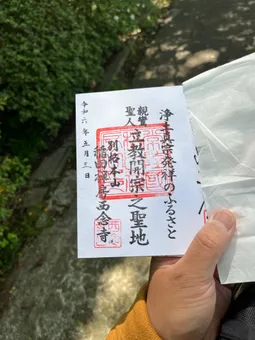 浄土真宗発祥のふるさと
親鸞聖人
立教開宗之聖地
別格本山
稲田禅房西念寺
令和六年五月三日